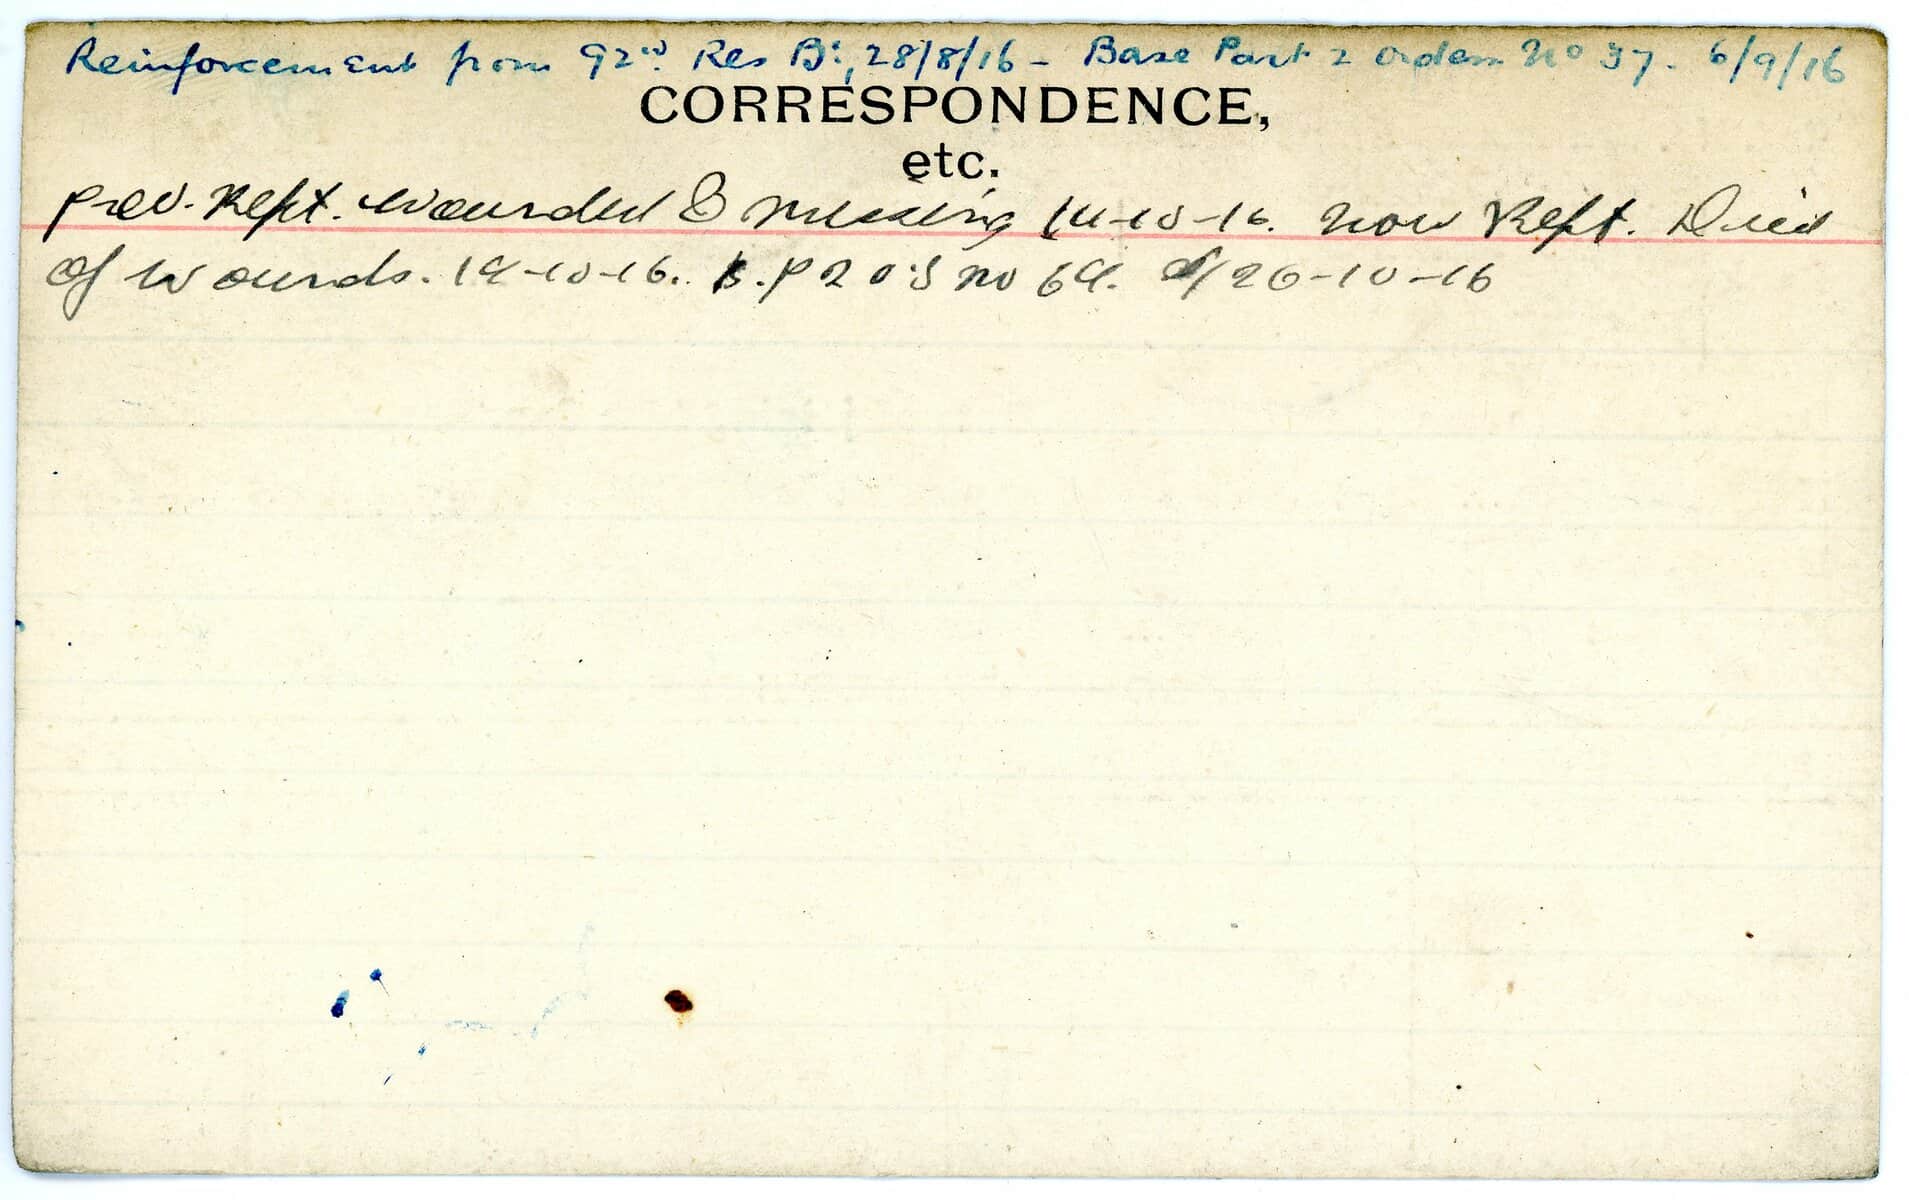 Reinforcement from 92nd Res Bn, 28/8/16 - Base Part 2 orders No 37. 6/9/16
CORRESPONDENCE,
etc.
prev. Rept. wounded & missing 14-10-16. now Rept. Died
of wounds. 14-10-16. B.P 2 O'S no 64. d/26-10-16